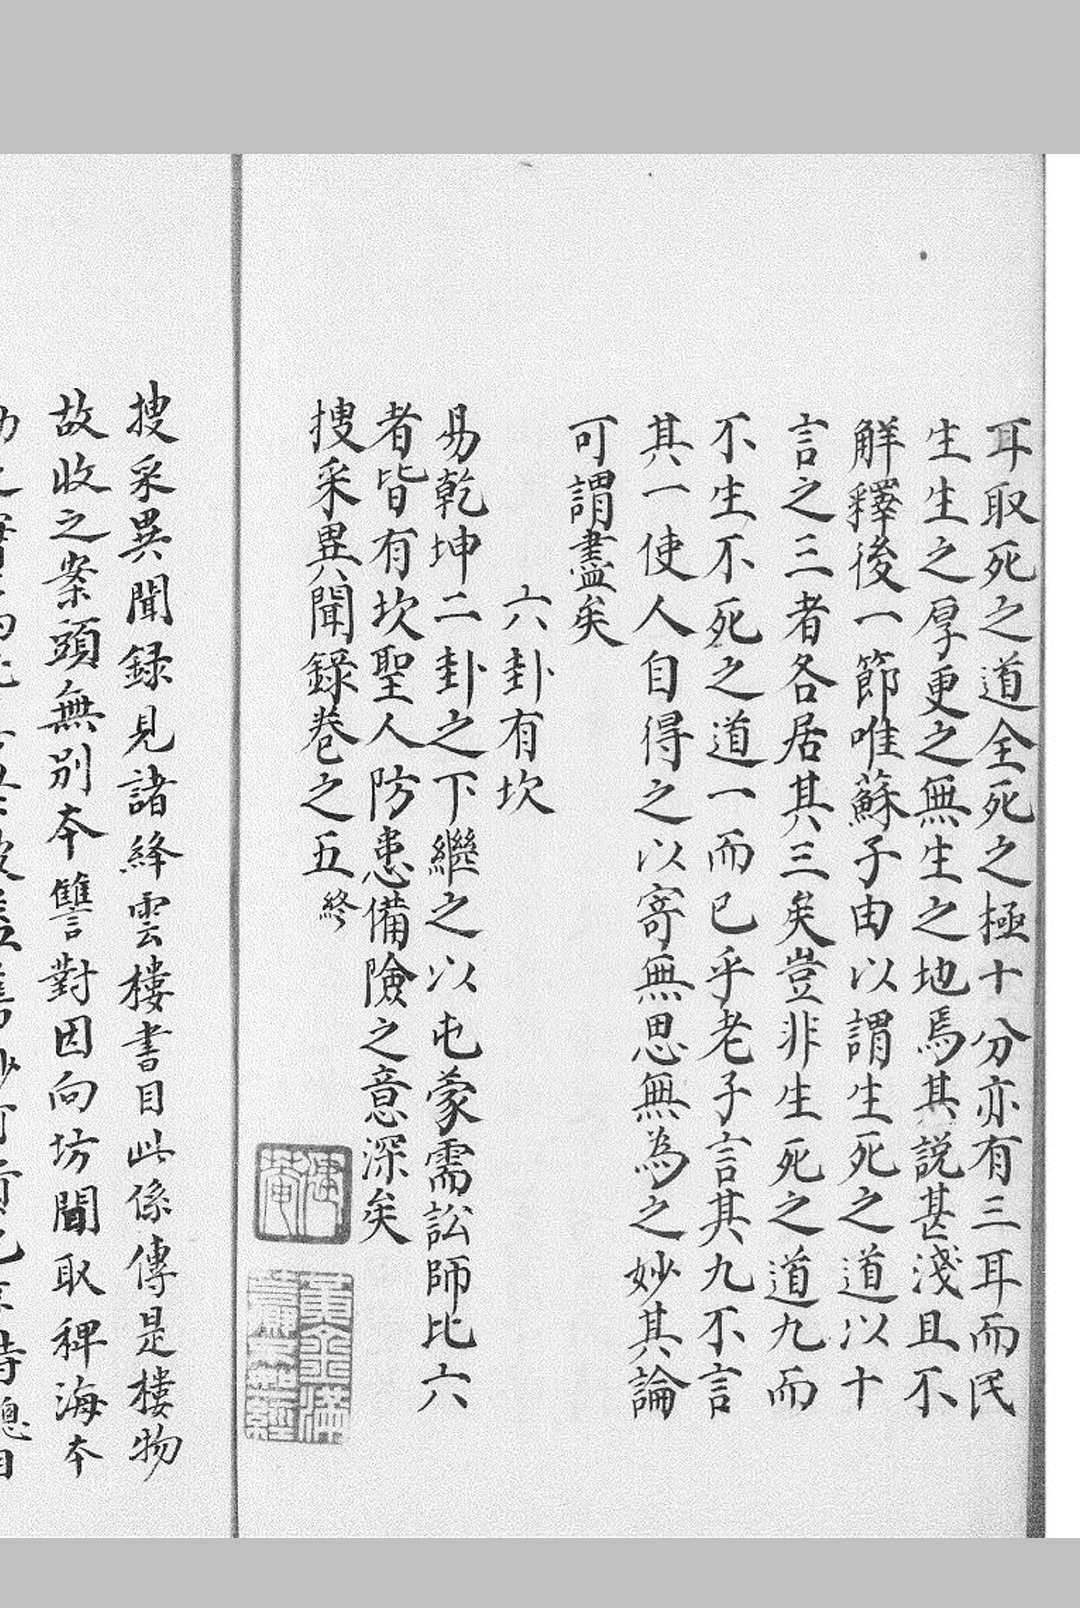 耳取死之道全死之極十分亦有三耳而民
生生之厚更之無生之地焉其説甚淺且不
解釋後一節唯蘇子由以謂生死之道以十
言之三者各居其三矣豈非生死之道九而
不生不死之道一而已乎老子言其九不言
其一使人自得之以寄無思無為之妙其論
可謂盡矣
六卦有坎
易乾坤二卦之下繼之以屯蒙需訟師比六
者皆有坎聖人防患備險之意深矣
搜采異聞録卷之五終
搜采異聞録見諸絳雲樓書目此係傳是樓物
故收之案頭無别本讐對因向坊間取稗海本